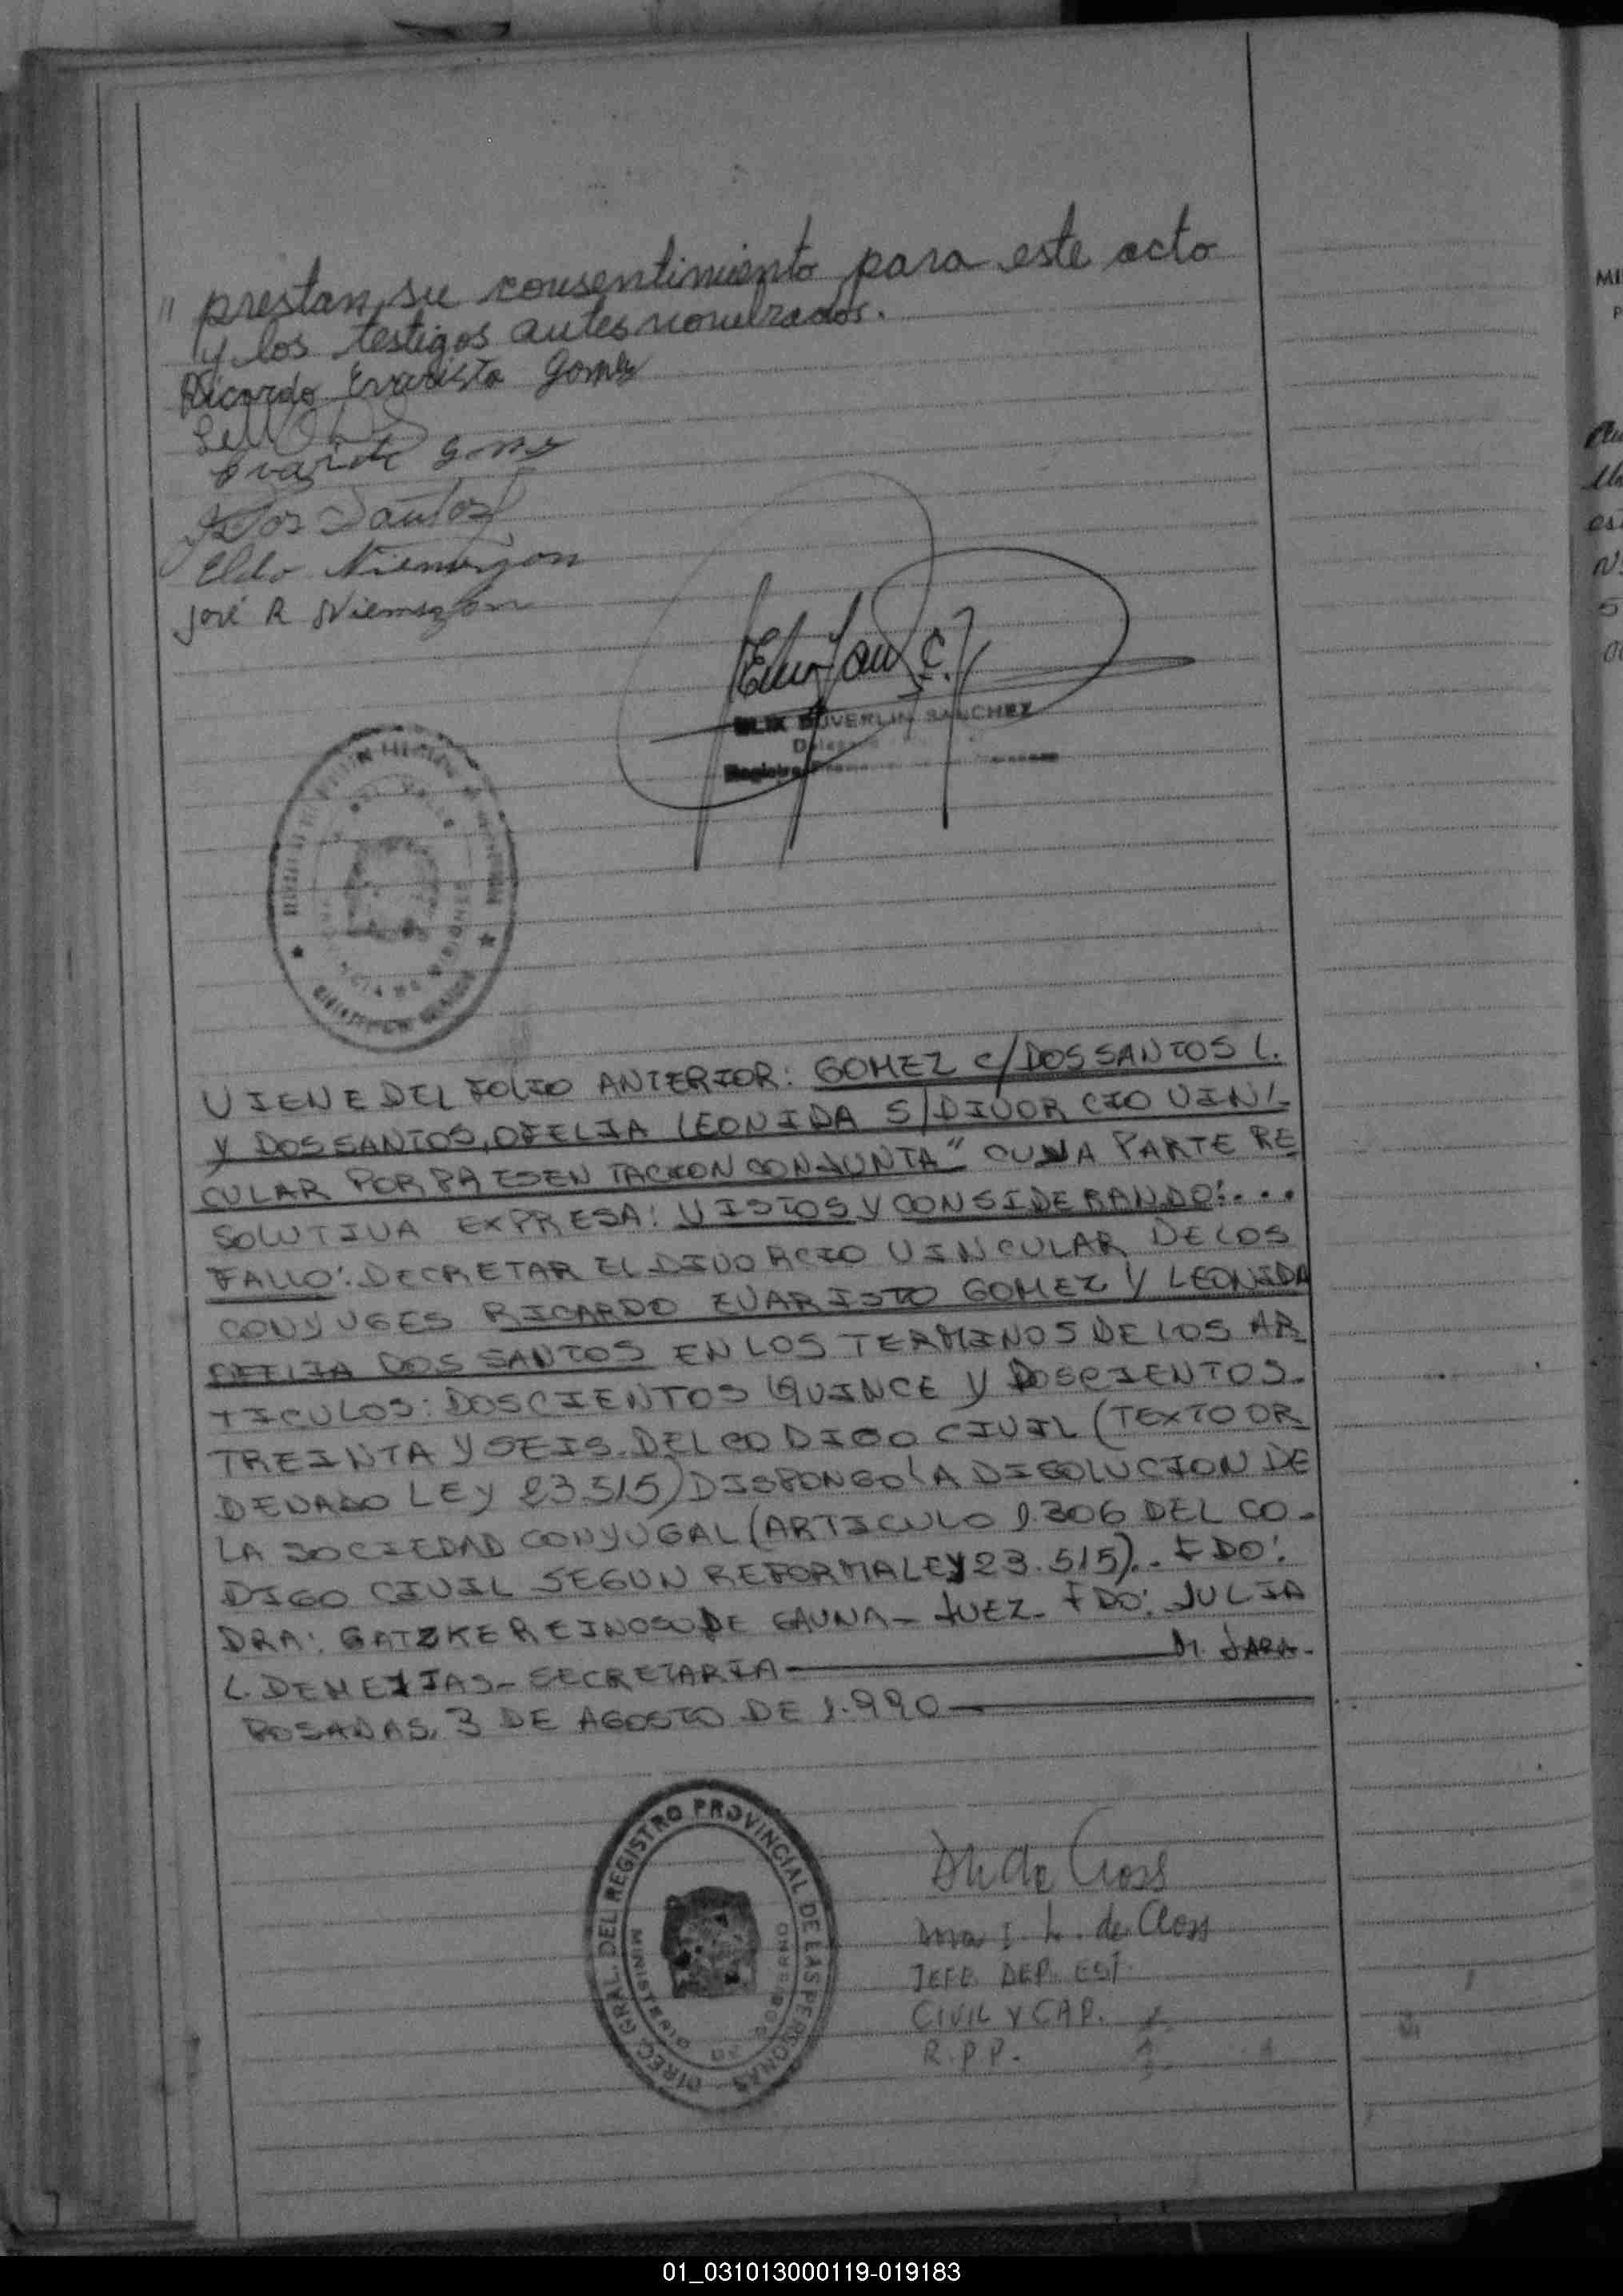 " prestan su consentimiento para este acto
y los testigos antes nombrados.
Ricardo Evaristo Gomez
Evaristo Gomez
Dos Santos
Eldo Niemezon
José R Niemszon
FELIX DUVERLIN SANCHEZ
VIENE DEL FOLIO ANTERIOR: GOMEZ C/DOS SANTOS L.
Y DOS SANTOS, OFELIA LEONIDA S/DIVORCIO VIN/-
CULAR POR PRESENTACION CONJUNTA" CUYA PARTE RE
SOLUTIVA EXPRESA: VISTOS Y CONSIDERANDO:...
FALLO: DECRETAR EL DIVORCIO VINCULAR DE LOS
CONYUGES RICARDO EVARISTO GOMEZ Y LEONIDA
OFELIA DOS SANTOS EN LOS TERMINOS DE LOS AR_
TICULOS: DOSCIENTOS QUINCE Y DOSCIENTOS.
TREINTA Y SEIS. DEL CODIGO CIVIL (TEXTO OR_
DENADO LEY 23515) DISPONGO LA DISOLUCION DE
LA SOCIEDAD CONYUGAL (ARTICULO 1.306 DEL CO-
DIGO CIVIL SEGUN REFORMA LEY 23.515).. FDO:
DRA: GATZKE REINOSO DE GAUNA- JUEZ- FDO: JULIA
L. DEMENJAS- SECRETARIA
M. JARA-
POSADAS, 3 DE AGOSTO DE 1.990
DIREC. GRAL. DEL REGISTRO PROVINCIAL DE LAS PERSONAS
MINISTERIO DE GOBIERNO
de Closs
I. L. de Closs
JEFE DEP. EST.
CIVIL Y CAP.
R.P.P.
01_031013000119-019183